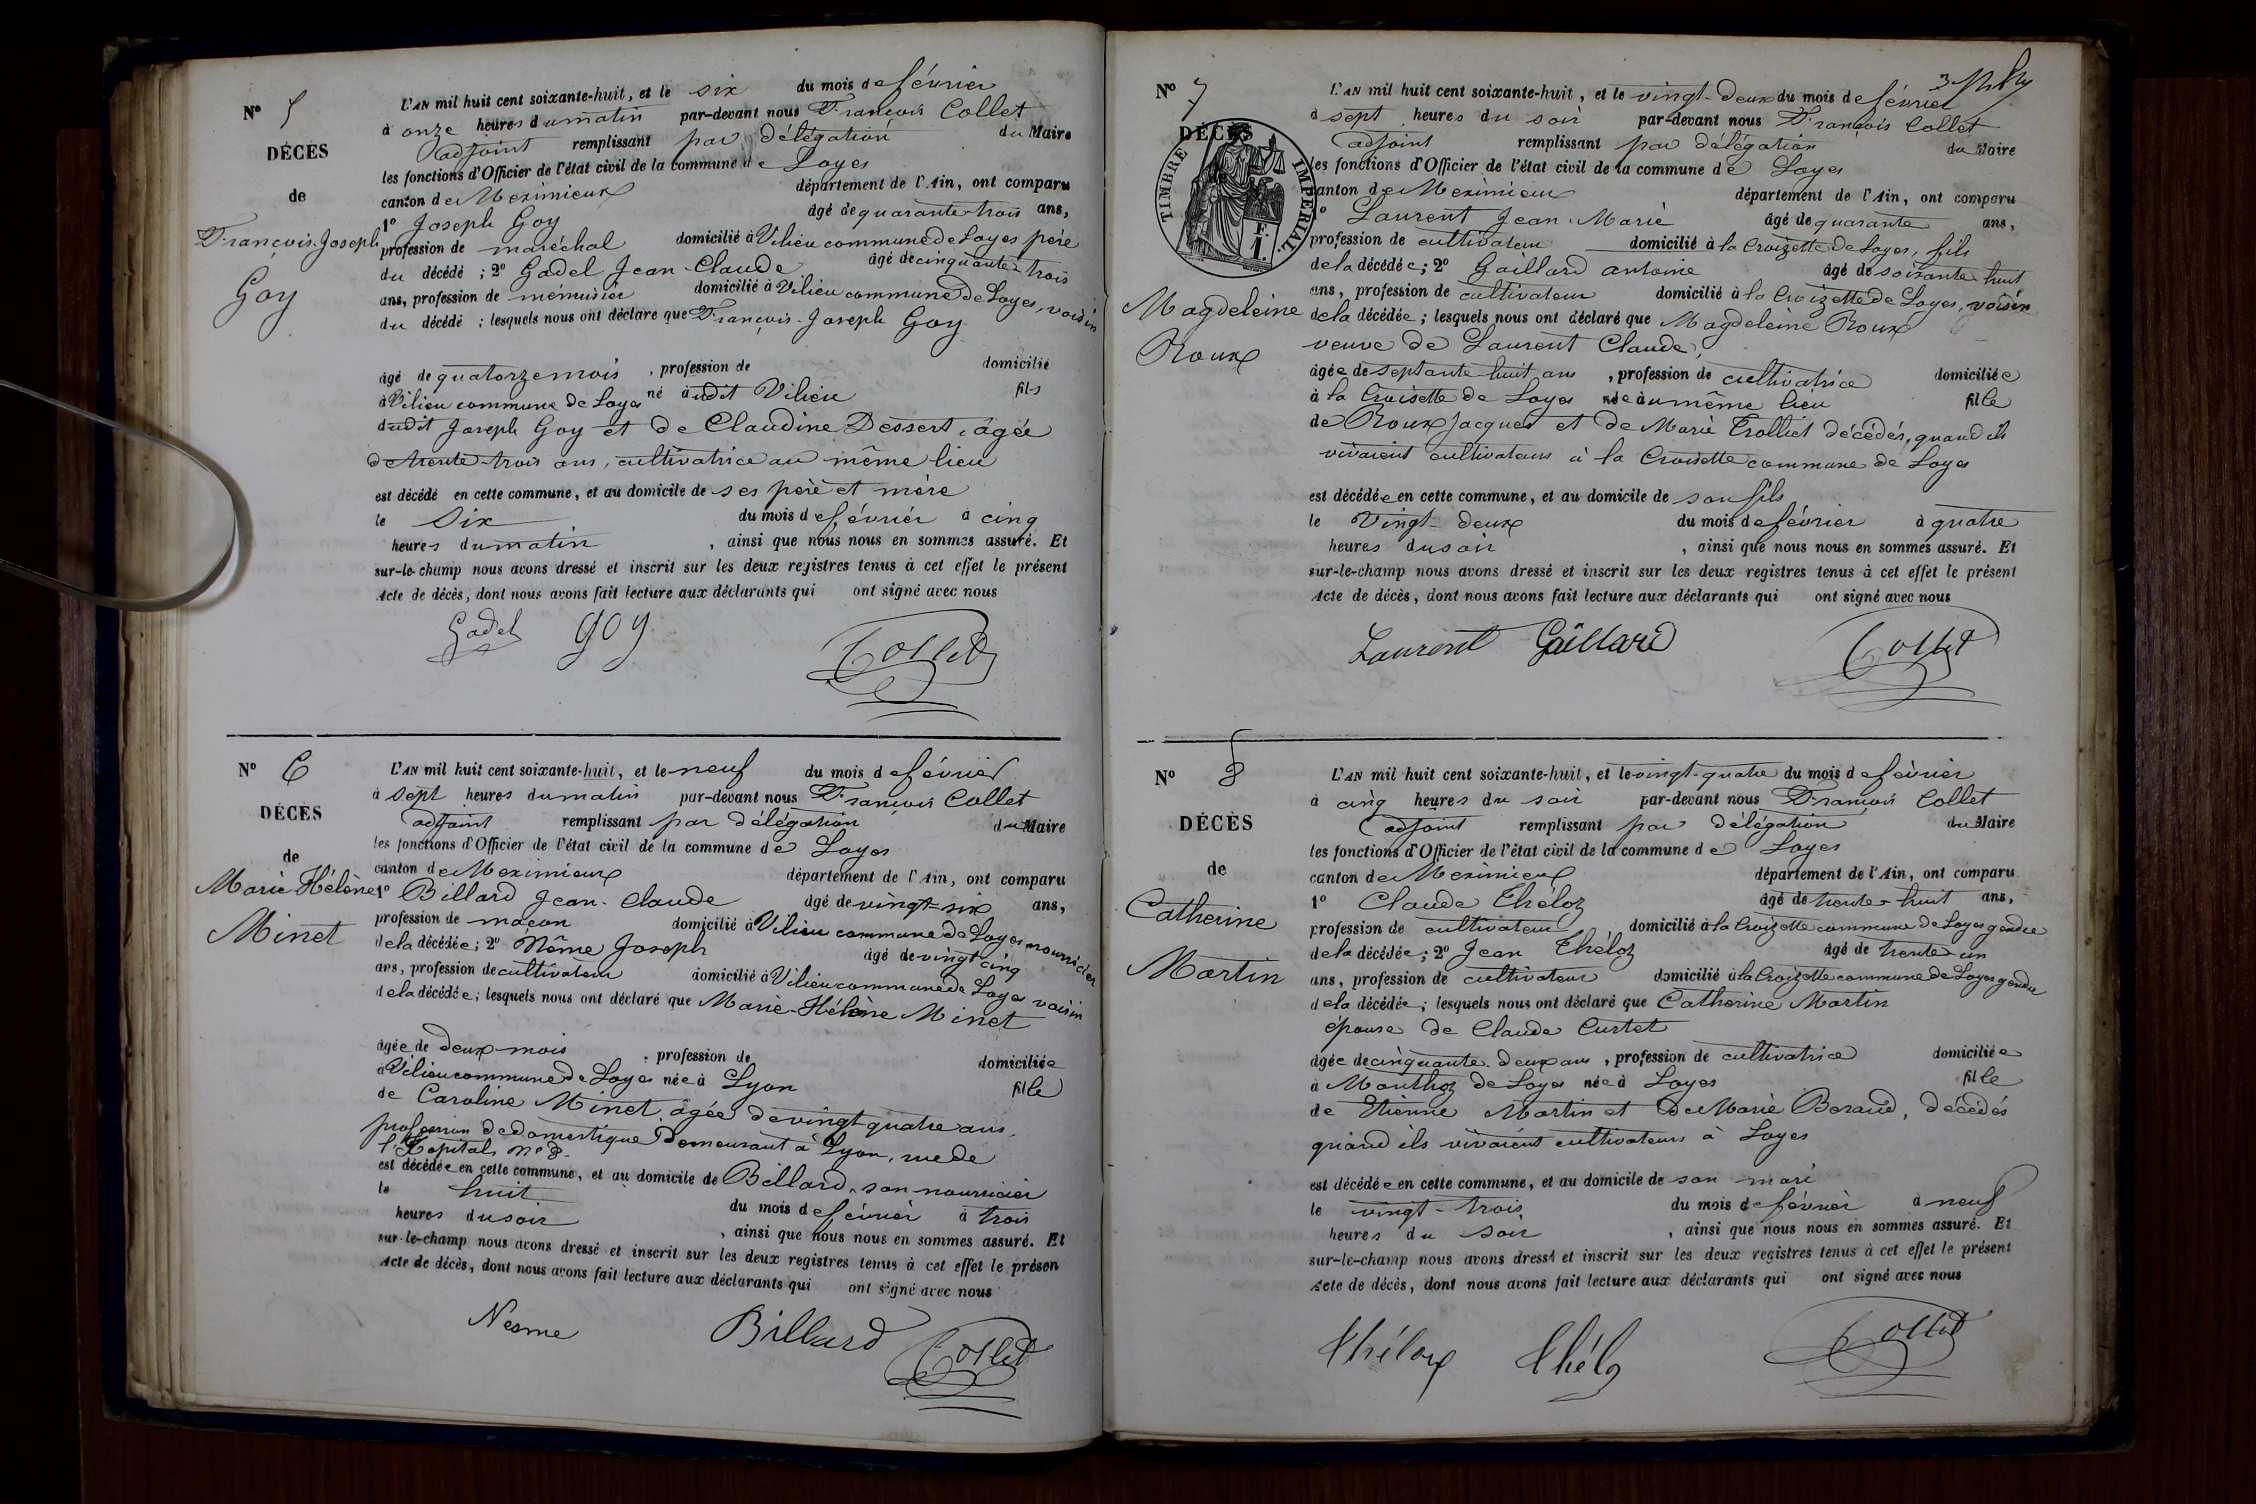 N° 5
DÉCÈS
de
François-Joseph
Goy
L'AN mil huit cent soixante-huit, et le six du mois de février
à onze heures du matin par-devant nous François Collet
adjoint remplissant par délégation du Maire
les fonctions d'Officier de l'état civil de la commune de Loyes
canton de Meximieux département de l'Ain, ont comparu
1° Joseph Goy âgé de quarante-trois ans,
profession de maréchal domicilié à Vilieu commune de Loyes père
du décédé ; 2° Gadel Jean-Claude âgé de cinquante-trois
ans, profession de menuisier domicilié à Vilieu commune de Loyes, voisin
du décédé ; lesquels nous ont déclaré que François-Joseph Goy
âgé de quatorze mois , profession de domicilié
à Vilieu commune de Loyes né audit Vilieu fils
dudit Joseph Goy et de Claudine Dessert, âgée
de trente-trois ans, cultivatrice au même lieu
est décédé en cette commune, et au domicile de ses père et mère
le six du mois de février à cinq
heures du matin , ainsi que nous nous en sommes assuré. Et
sur-le-champ nous avons dressé et inscrit sur les deux registres tenus à cet effet le présent
Acte de décès, dont nous avons fait lecture aux déclarants qui ont signé avec nous
Gadel Goy Collet
N° 6
DÉCÈS
de
Marie Hélène
Minet
L'AN mil huit cent soixante-huit, et le neuf du mois de février
à sept heures du matin par-devant nous François Collet
adjoint remplissant par délégation du Maire
les fonctions d'Officier de l'état civil de la commune de Loyes
canton de Meximieux département de l'Ain, ont comparu
1° Billard Jean-Claude âgé de vingt-six ans,
profession de maçon domicilié à Vilieu commune de Loyes nourricier
de la décédée ; 2° Nême Joseph âgé de vingt cinq
ans, profession de cultivateur domicilié à Vilieu commune de Loyes voisin
de la décédée ; lesquels nous ont déclaré que Marie-Hélène Minet
âgée de deux mois , profession de domiciliée
à Vilieu commune de Loyes née à Lyon fille
de Caroline Minet, âgée de vingt quatre ans,
profession de domestique Demeurant à Lyon, rue de
l'Hopital, n° 8.
est décédée en cette commune, et au domicile de Billard, son nourricier
le huit du mois de février à trois
heures du soir , ainsi que nous nous en sommes assuré. Et
sur-le-champ nous avons dressé et inscrit sur les deux registres tenus à cet effet le présen
Acte de décès, dont nous avons fait lecture aux déclarants qui ont signé avec nous
Nesme Billard Collet
N° 7
DÉCÈS
TIMBRE IMPERIAL
F.
1.
Magdeleine
Roux
L'AN mil huit cent soixante-huit, et le vingt-deux du mois de février
à sept heures du soir par-devant nous François Collet
adjoint remplissant par délégation du Maire
les fonctions d'Officier de l'état civil de la commune de Loyes
canton de Meximieux département de l'Ain, ont comparu
1° Laurent Jean-Marie âgé de quarante ans,
profession de cultivateur domicilié à la Croizette de Loyes, fils
de la décédée ; 2° Gaillard antoine âgé de soixante huit
ans, profession de cultivateur domicilié à la Croizette de Loyes, voisin
de la décédée ; lesquels nous ont déclaré que Magdeleine Roux
veuve de Laurent Claude,
âgée de septante huit ans , profession de cultivatrice domiciliée
à la Croisette de Loyes née au même lieu fille
de Roux Jacques et de Marie Trolliet décédés, quand ils
vivaient cultivateurs à la Croisette commune de Loyes
est décédée en cette commune, et au domicile de son fils
le vingt-deux du mois de février à quatre
heures du soir , ainsi que nous nous en sommes assuré. Et
sur-le-champ nous avons dressé et inscrit sur les deux registres tenus à cet effet le présent
Acte de décès, dont nous avons fait lecture aux déclarants qui ont signé avec nous
Laurent Gaillard Collet
N° 8
DÉCÈS
de
Catherine
Martin
L'AN mil huit cent soixante-huit, et le vingt-quatre du mois de février
à cinq heures du soir par-devant nous François Collet
adjoint remplissant par délégation du Maire
les fonctions d'Officier de l'état civil de la commune de Loyes
canton de Meximieux département de l'Ain, ont comparu
1° Claude Théloz âgé de trente-huit ans,
profession de cultivateur domicilié à la Croizette commune de Loyes gendre
de la décédée ; 2° Jean Théloz âgé de trente un
ans, profession de cultivateur domicilié à la Croizette commune de Loyes gendre
de la décédée ; lesquels nous ont déclaré que Catherine Martin
épouse de Claude Curtet
âgée de cinquante-deux ans , profession de cultivatrice domiciliée
à Monthoz de Loyes née à Loyes fille
de Etienne Martin et de Marie Beraud, décédés
quand ils vivaient cultivateurs à Loyes
est décédée en cette commune, et au domicile de son mari
le vingt-trois du mois de février à neuf
heures du soir , ainsi que nous nous en sommes assuré. Et
sur-le-champ nous avons dressé et inscrit sur les deux registres tenus à cet effet le présent
Acte de décès, dont nous avons fait lecture aux déclarants qui ont signé avec nous
Théloz Théloz Collet